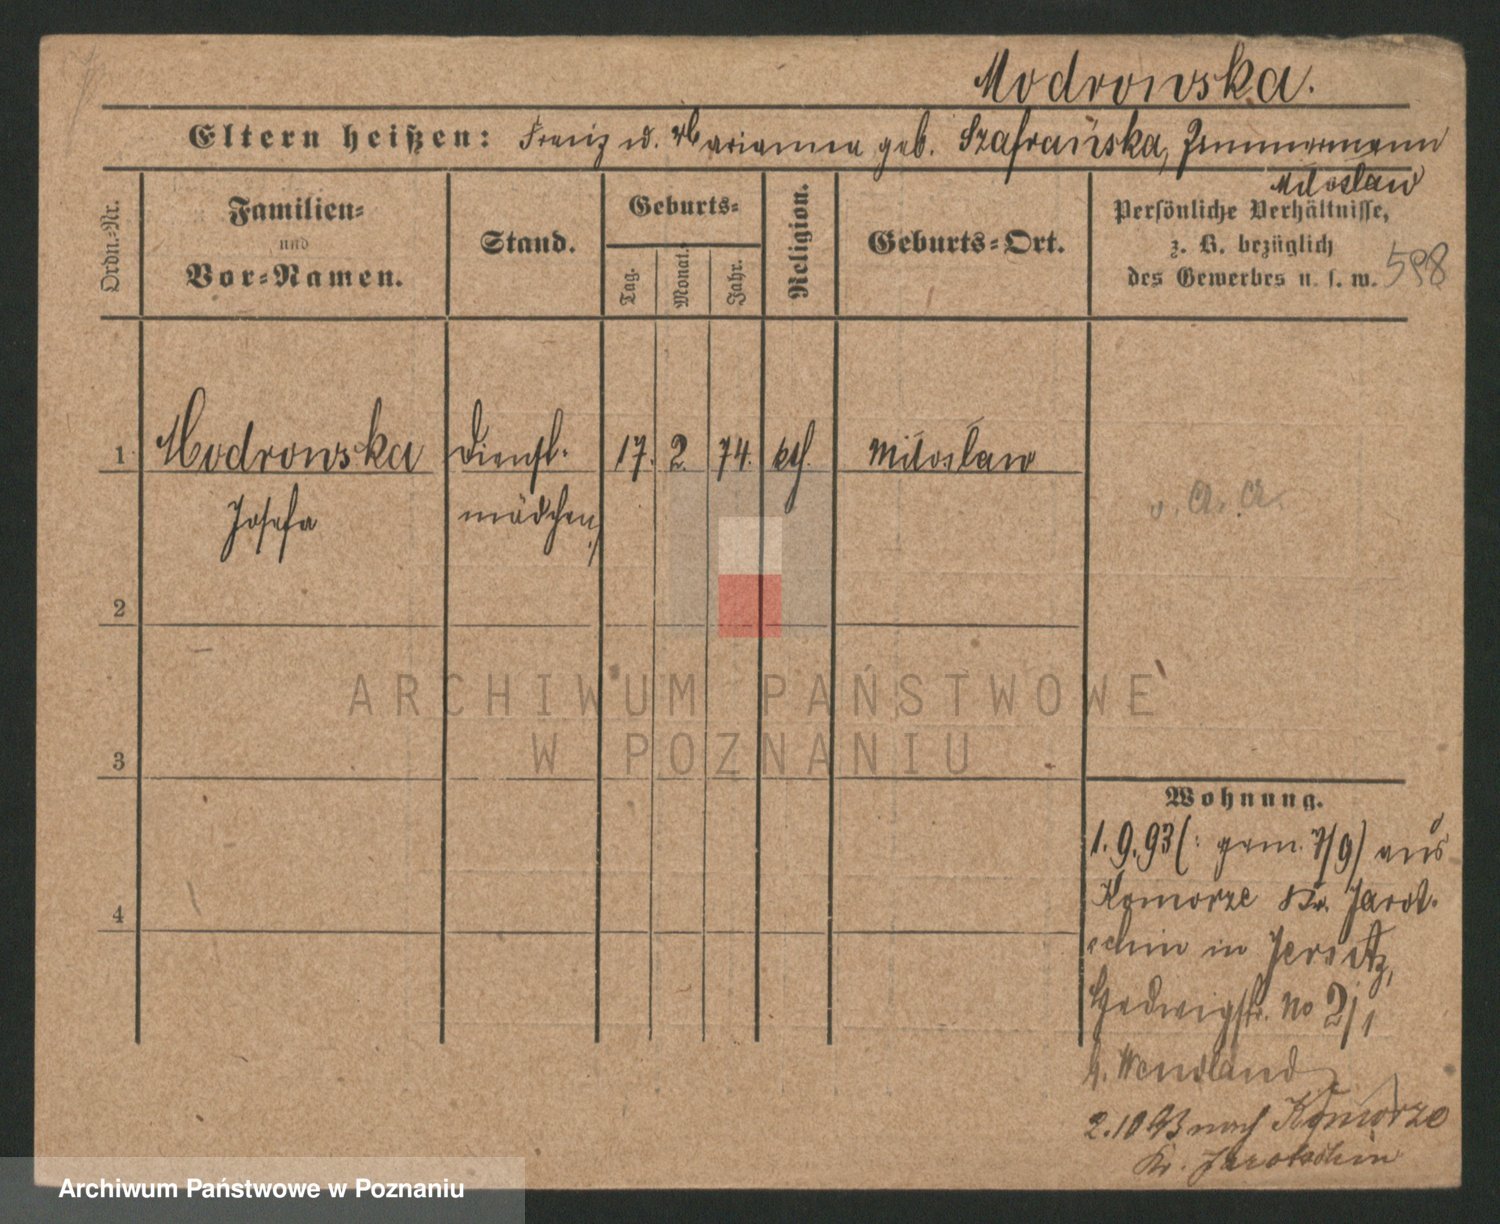 Modrowska.
Eltern heißen: Franz u. Marianna geb. Szafrańska, Zimmermann
Miloslaw
Ordn.-Nr.
Familien-
und
Vor-Namen.
Stand.
Geburts-
Tag.
Monat.
Jahr.
Religion.
Geburts-Ort.
Persönliche Verhältnisse,
z. B. bezüglich
des Gewerbes u. s. w.
598
1 Modrowska Dienst- 17. 2. 74. kth. Miloslaw
Josefa mädchen
v. A. A.
2
3
4
ARCHIWUM PAŃSTWOWE
W POZNANIU
Wohnung.
1. 9. 93 (: gem. 7/9) aus
Komorze Kr. Jarot-
schin in Jersitz,
Hedwigstr. No 2/1
b. Wendland
2. 10 93 nach Komorze
Kr. Jarotschin
Archiwum Państwowe w Poznaniu